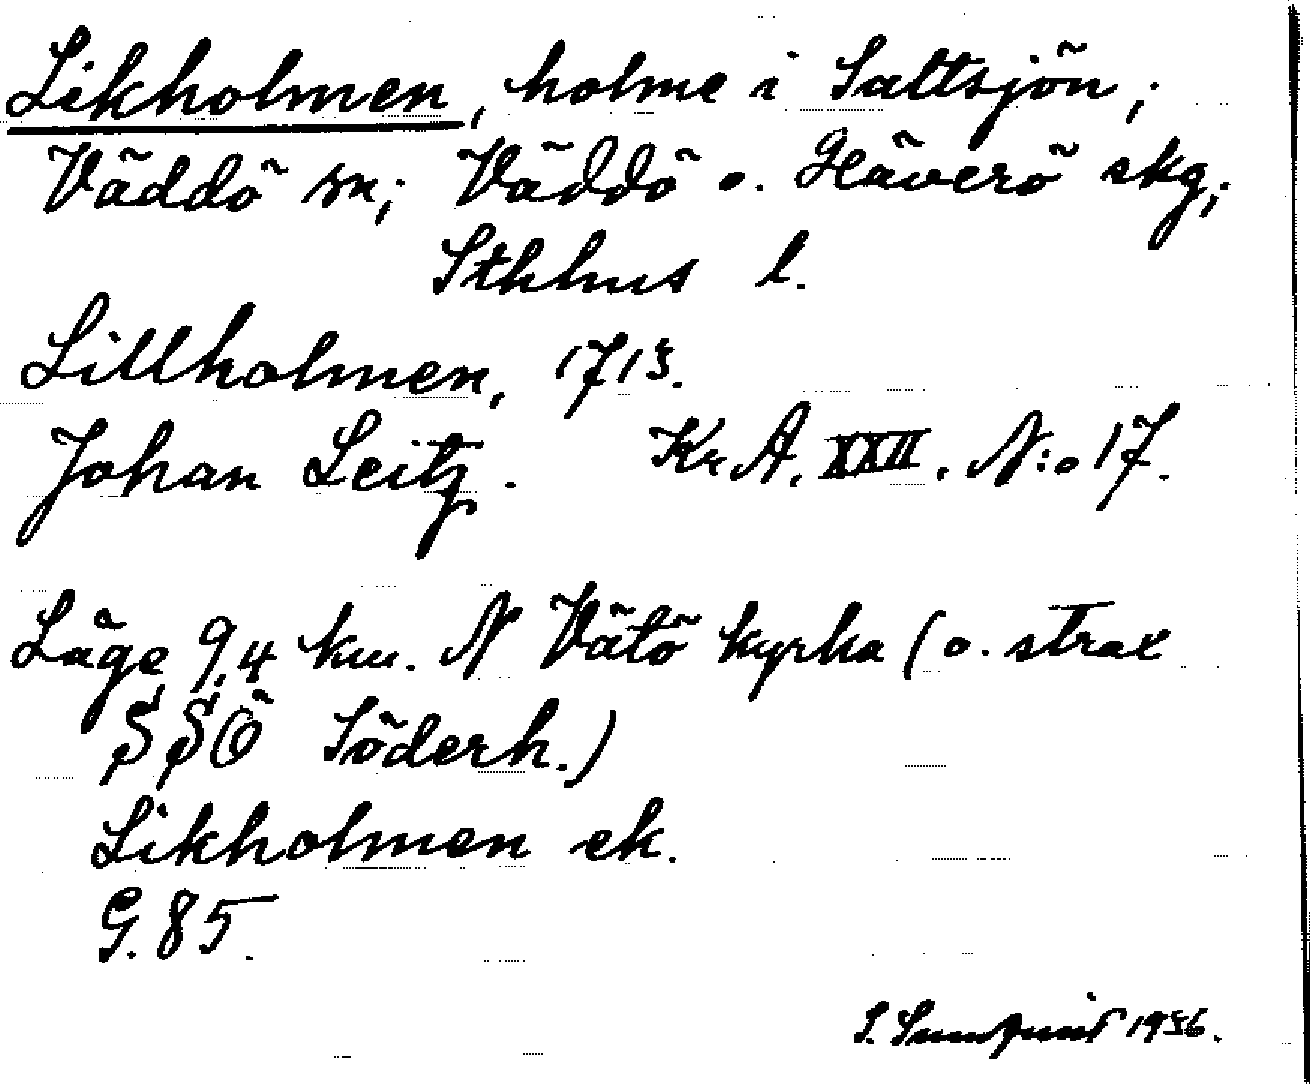 Likholmen, holme i Saltsjön;
Väddö sn; Väddö o. Häverö skg;
Sthlms l.
Lillholmen, 1715.
Johan Leitz. Kr.A. XXII. N:o 17.
Läge 9,4 km. N Vätö kyrka (o. strax
SSÖ Söderh.)
Likholmen ek.
G. 85.
S. Sundquist 1936.